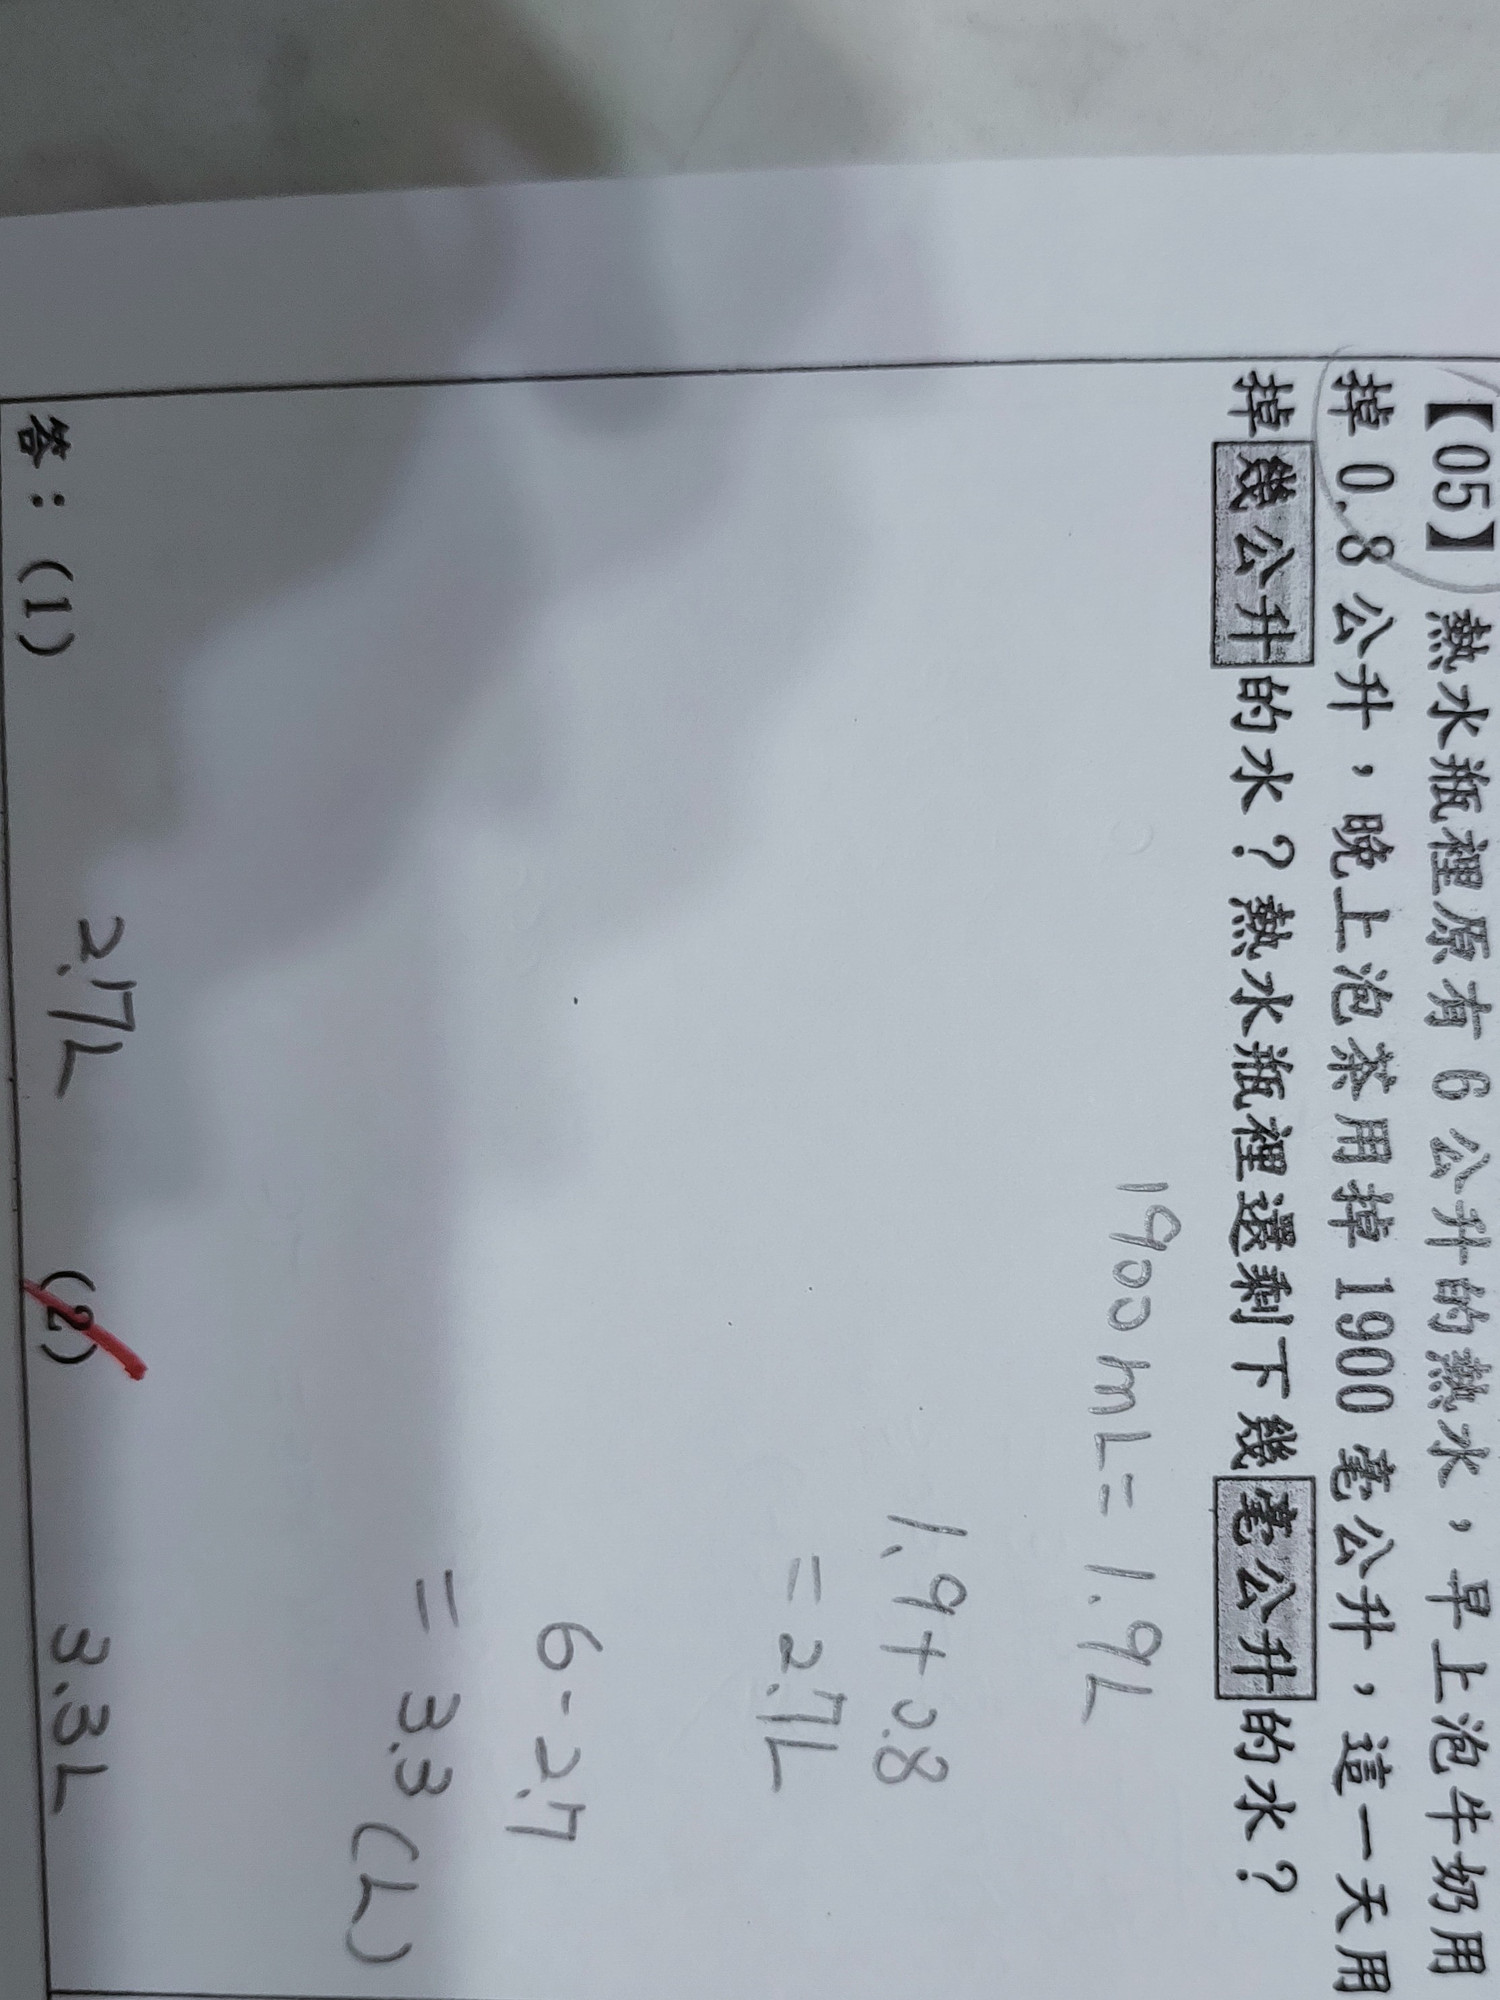 【05】熱水瓶裡原有 6 公升的熱水，早上泡牛奶用
掉 0.8 公升，晚上泡茶用掉 1900 毫公升，這一天用
掉幾公升的水？熱水瓶裡還剩下幾毫公升的水？
1900mL=1.9L
1.9+0.8
=2.7L
6-2.7
=3.3(L)
答：(1) 2.7L (2) 3.3L